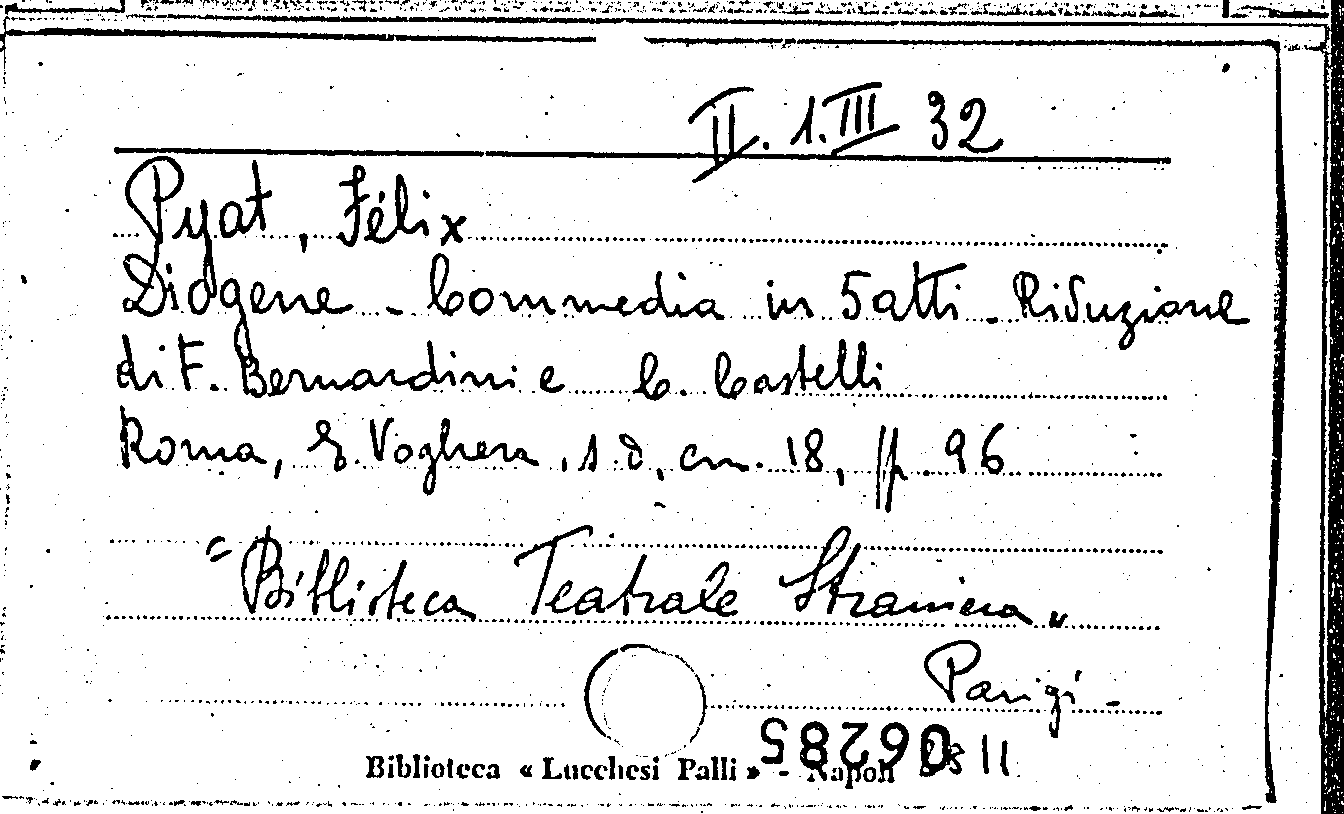 II. 1. III 32
Pyat, Félix
Diogene - Commedia in 5 atti - Riduzione
di F. Bernardini e C. Castelli
Roma, E. Voghera, s.d., cm. 18, pp. 96
"Biblioteca Teatrale Straniera"
Parigi -
Biblioteca « Lucchesi Palli » - Napoli